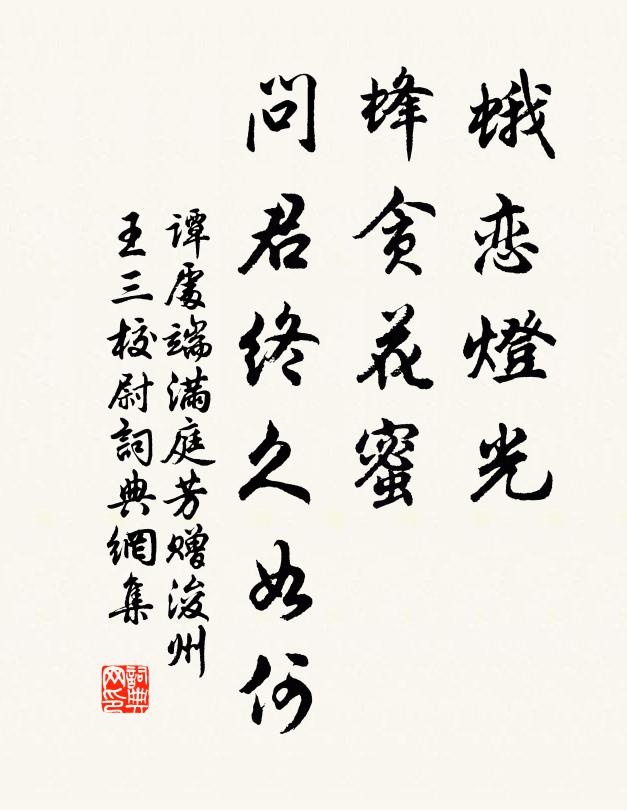 蛾恋燈光
蜂贪花蜜
問君終久如何
谭處端滿庭芳赠浚州
王三校尉詞典網集
詞典网印